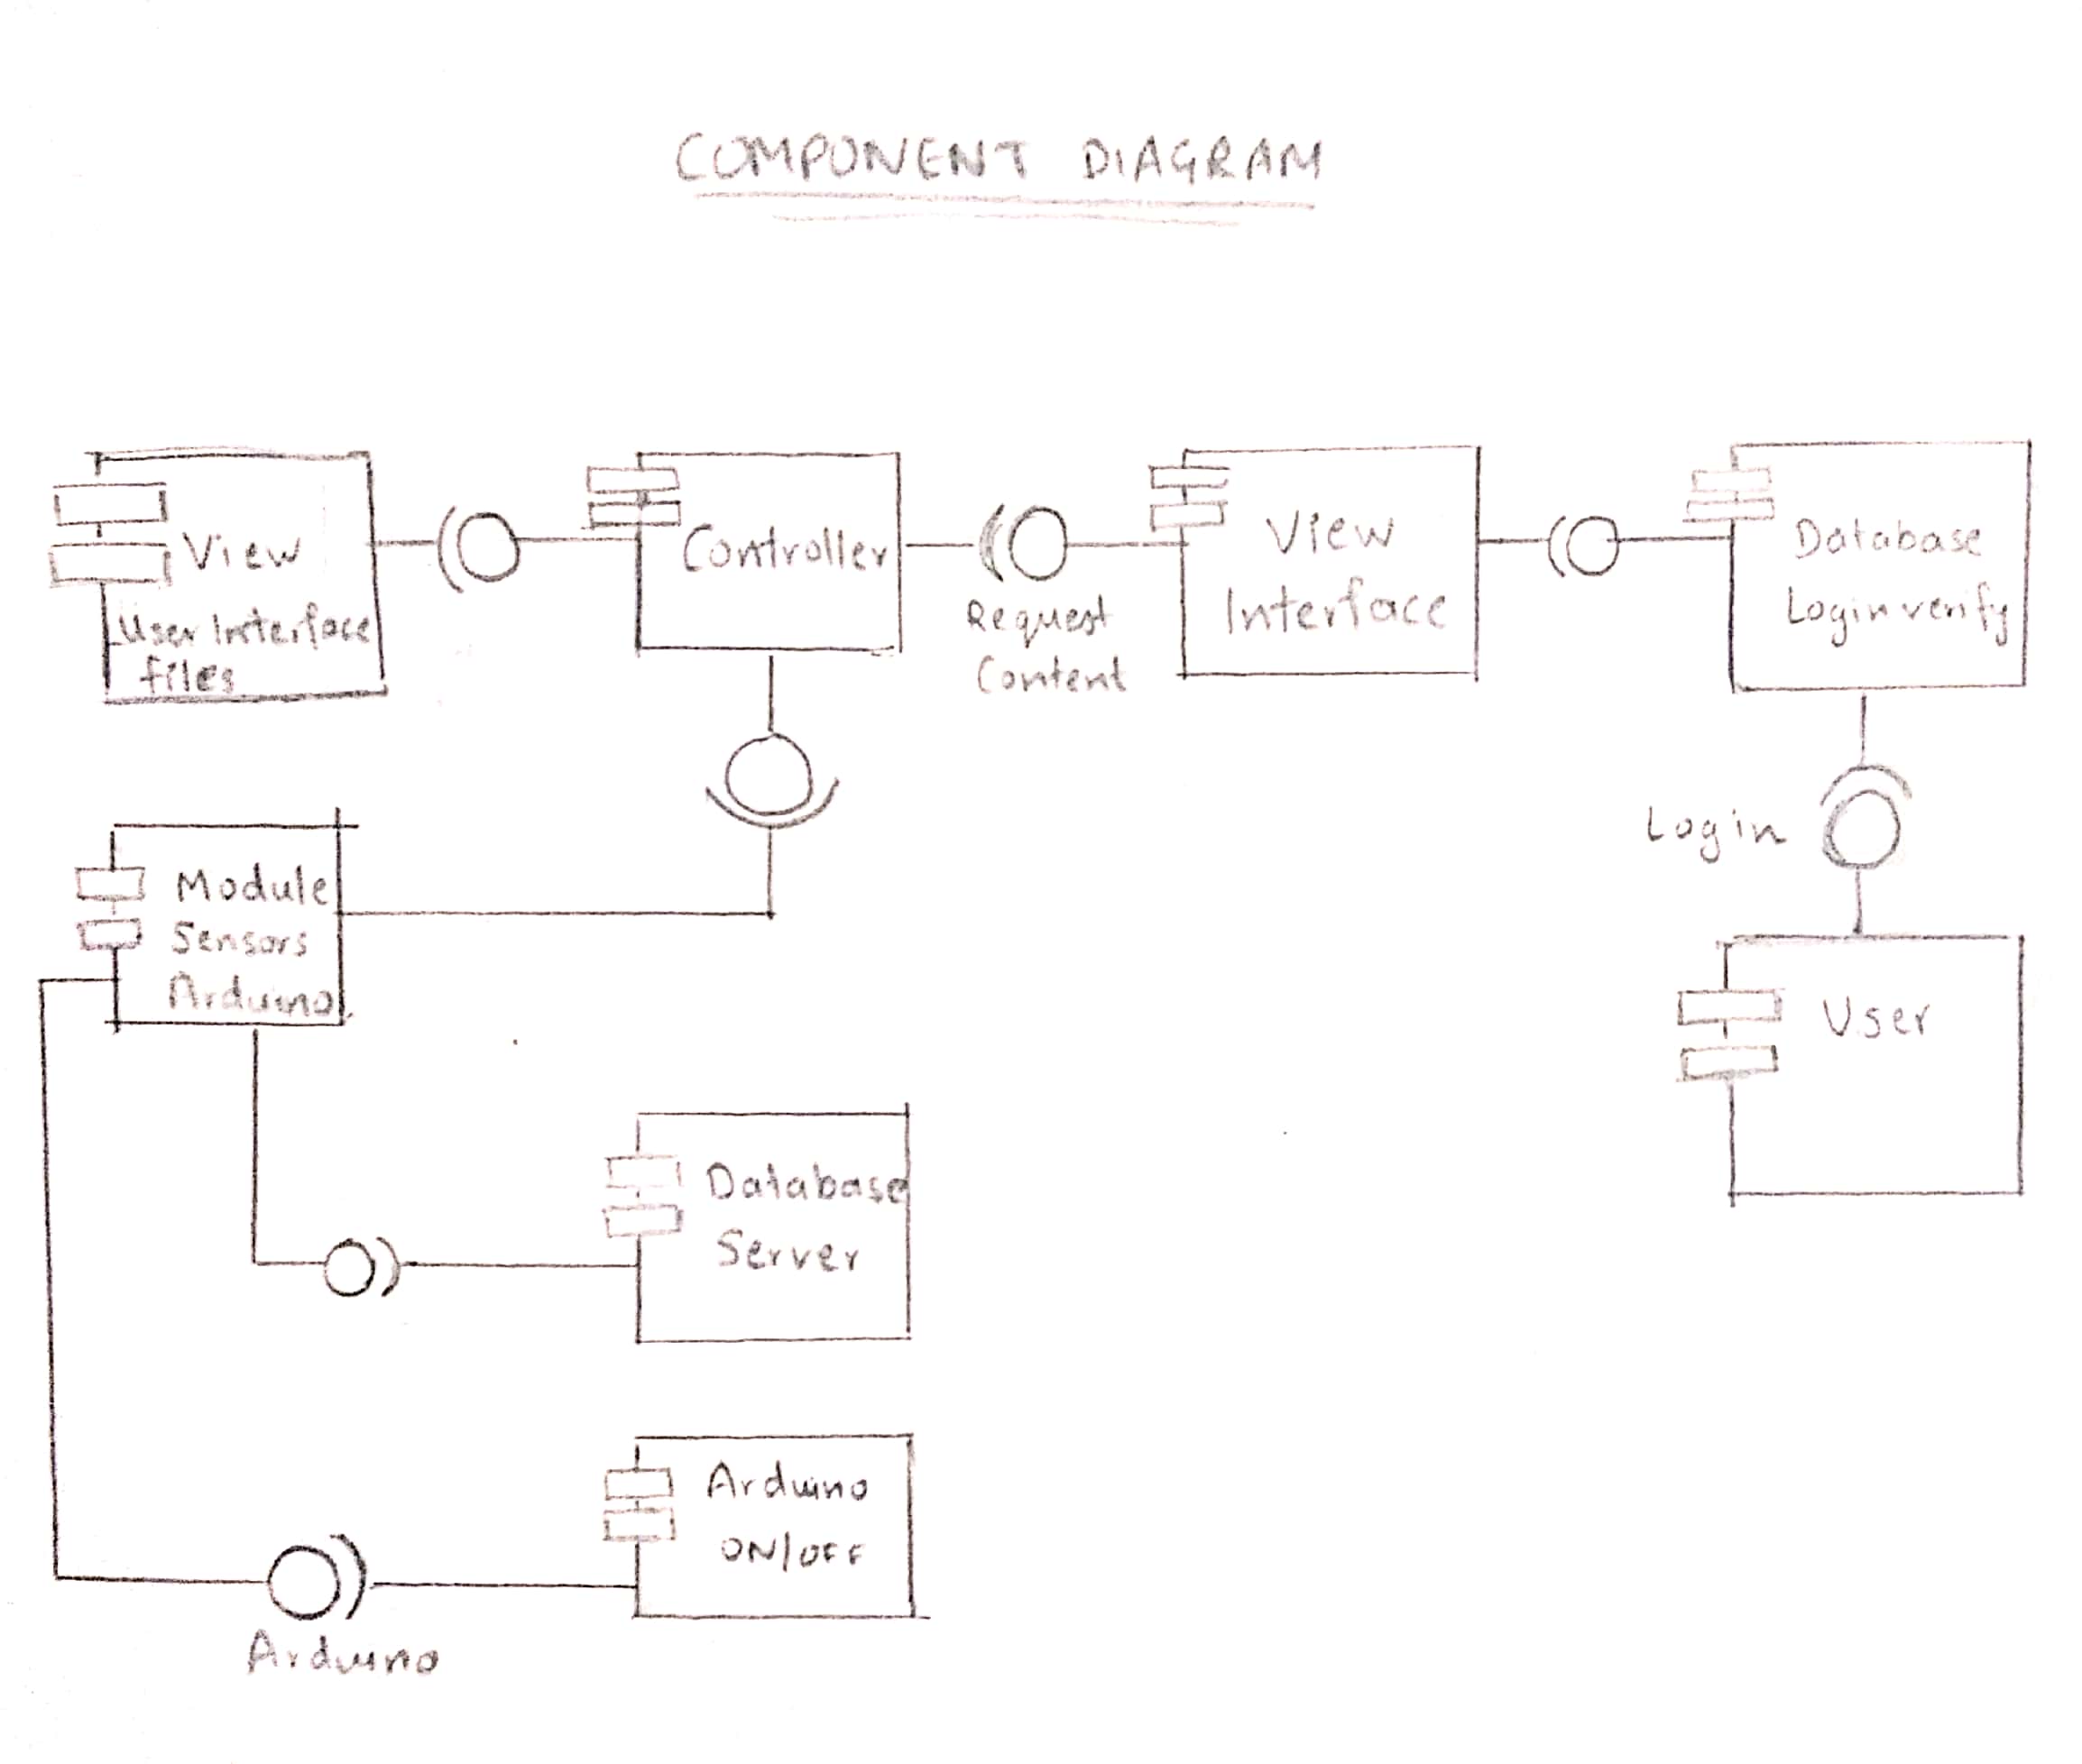 COMPONENT DIAGRAM
View
User Interface
files
Controller
Request
Content
View
Interface
Database
Login verify
Login
User
Module
Sensors
Arduino
Database
Server
Arduino
ON/OFF
Arduino